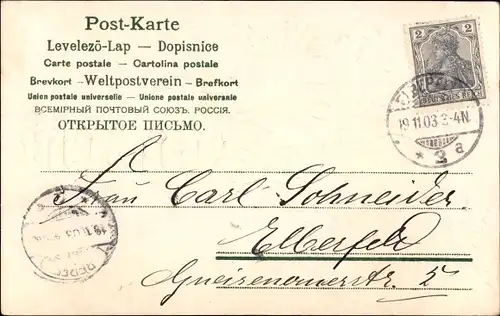 Post-Karte
Levelező-Lap — Dopisnice
Carte postale — Cartolina postale
Brevkort - Weltpostverein - Brefkort
Union postale universelle — Unione postale universale
ВСЕМІРНЫЙ ПОЧТОВЫЙ СОЮЗЪ. РОССІЯ.
ОТКРЫТОЕ ПИСЬМО.
2 2
DEUTSCHES REICH
19.11.03 3-4N
* 2 a
Frau Carl Schneider
Elberfeld
Gneisenauerstr. 5